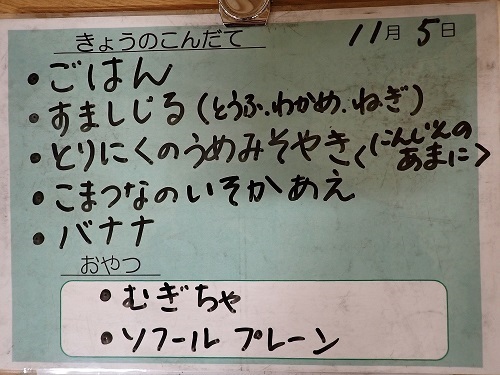 きょうのこんだて 11月5日
・ごはん
・すましじる(とうふ.わかめ.ねぎ)
・とりにくのうめみそやき<にんじんのあまに>
・こまつなのいそかあえ
・バナナ
おやつ
・むぎちゃ
・ソフール プレーン